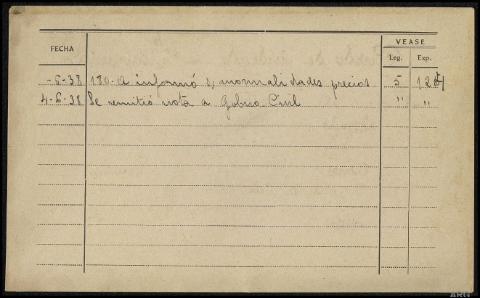 FECHA
VEASE
Leg. Exp.
-6-38 180-A informó s/ anormalidades precios 5 12
4-6-38 Se remitió nota a Gobno. Civil " "